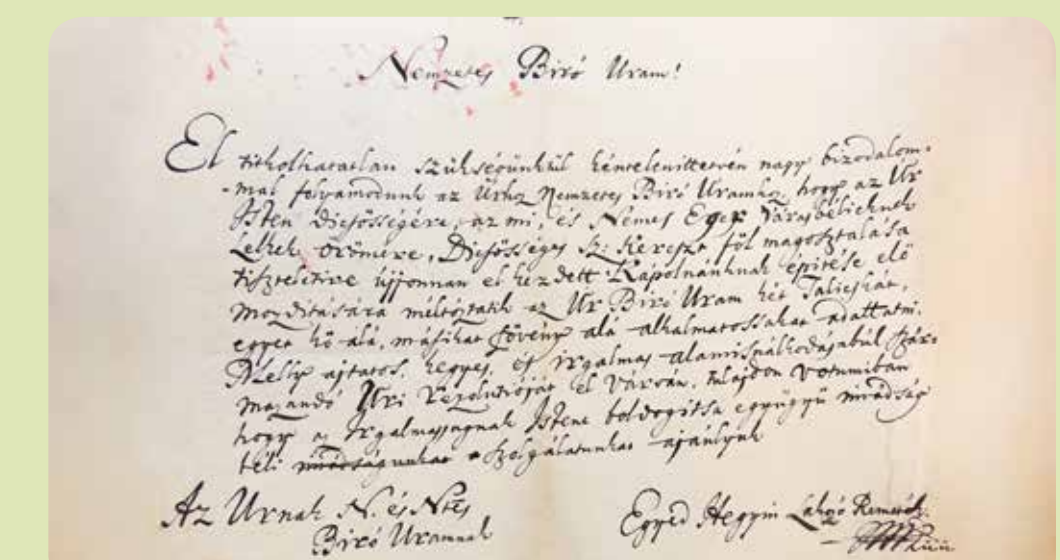 Nemzetes Biró Uram!
El titkolhatatlan szükségünktül kéntelenittetvén nagy bizodalom-
-mal folyamodunk az Urhoz Nemzetes Biró Uramhoz, hogy az Ur
Isten Dicsösségére, az mi, és Nemes Eger Városbélieknek
Lelkek örömere, Dicsösséges Sz: Kereszt föl magosztalása
tiszteletire újjonnan el kezdett Kápolnánknak építése elö
mozditására méltóztatik az Ur Biró Uram két Talicskát,
egyet kö alá, másikat fövény alá alkalmatossakat adattatni.
Melly ajtatos, kegyes, és irgalmas alamisnálkodásábúl szár-
mazandó Uri Rezolutióját el várván, tulajdon votumiban
hogy az Irgalmasságnak Istene boldogítsa együgyü imádság
béli szolgálatunkat ajánlyuk
Az Urnak N. és Ntes
Biró Uramnak
Egyed Hegyin Lakozó Remeték